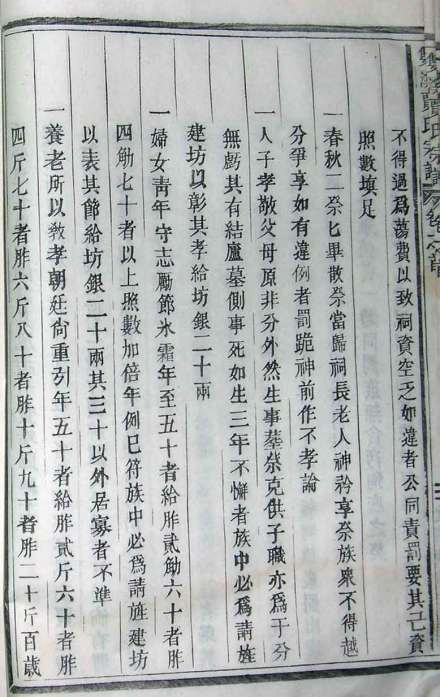 不得過爲蕩費以致祠資空乏如違者公同責罰要其己資
照數塡足
一春秋二祭匕畢散祭當歸祠長老人神矜享奈族衆不得越
分爭享如有違例者罰跪神前作不孝論
一人子孝敬父母原非分外然生事葬祭克供子職亦爲于分
無虧其有結廬墓側事死如生三年不懈者族中必爲請旌
建坊以彰其孝給坊銀二十兩
一婦女靑年守志勵節氷霜年至五十者給胙貳觔六十者胙
四觔七十者以上照數加倍年例已符族中必爲請旌建坊
以表其節給坊銀二十兩其三十以外居寡者不準
一養老所以敎孝朝廷尙重引年五十者給胙貳斤六十者胙
四斤七十者胙六斤八十者胙十斤九十者胙二十斤百歲